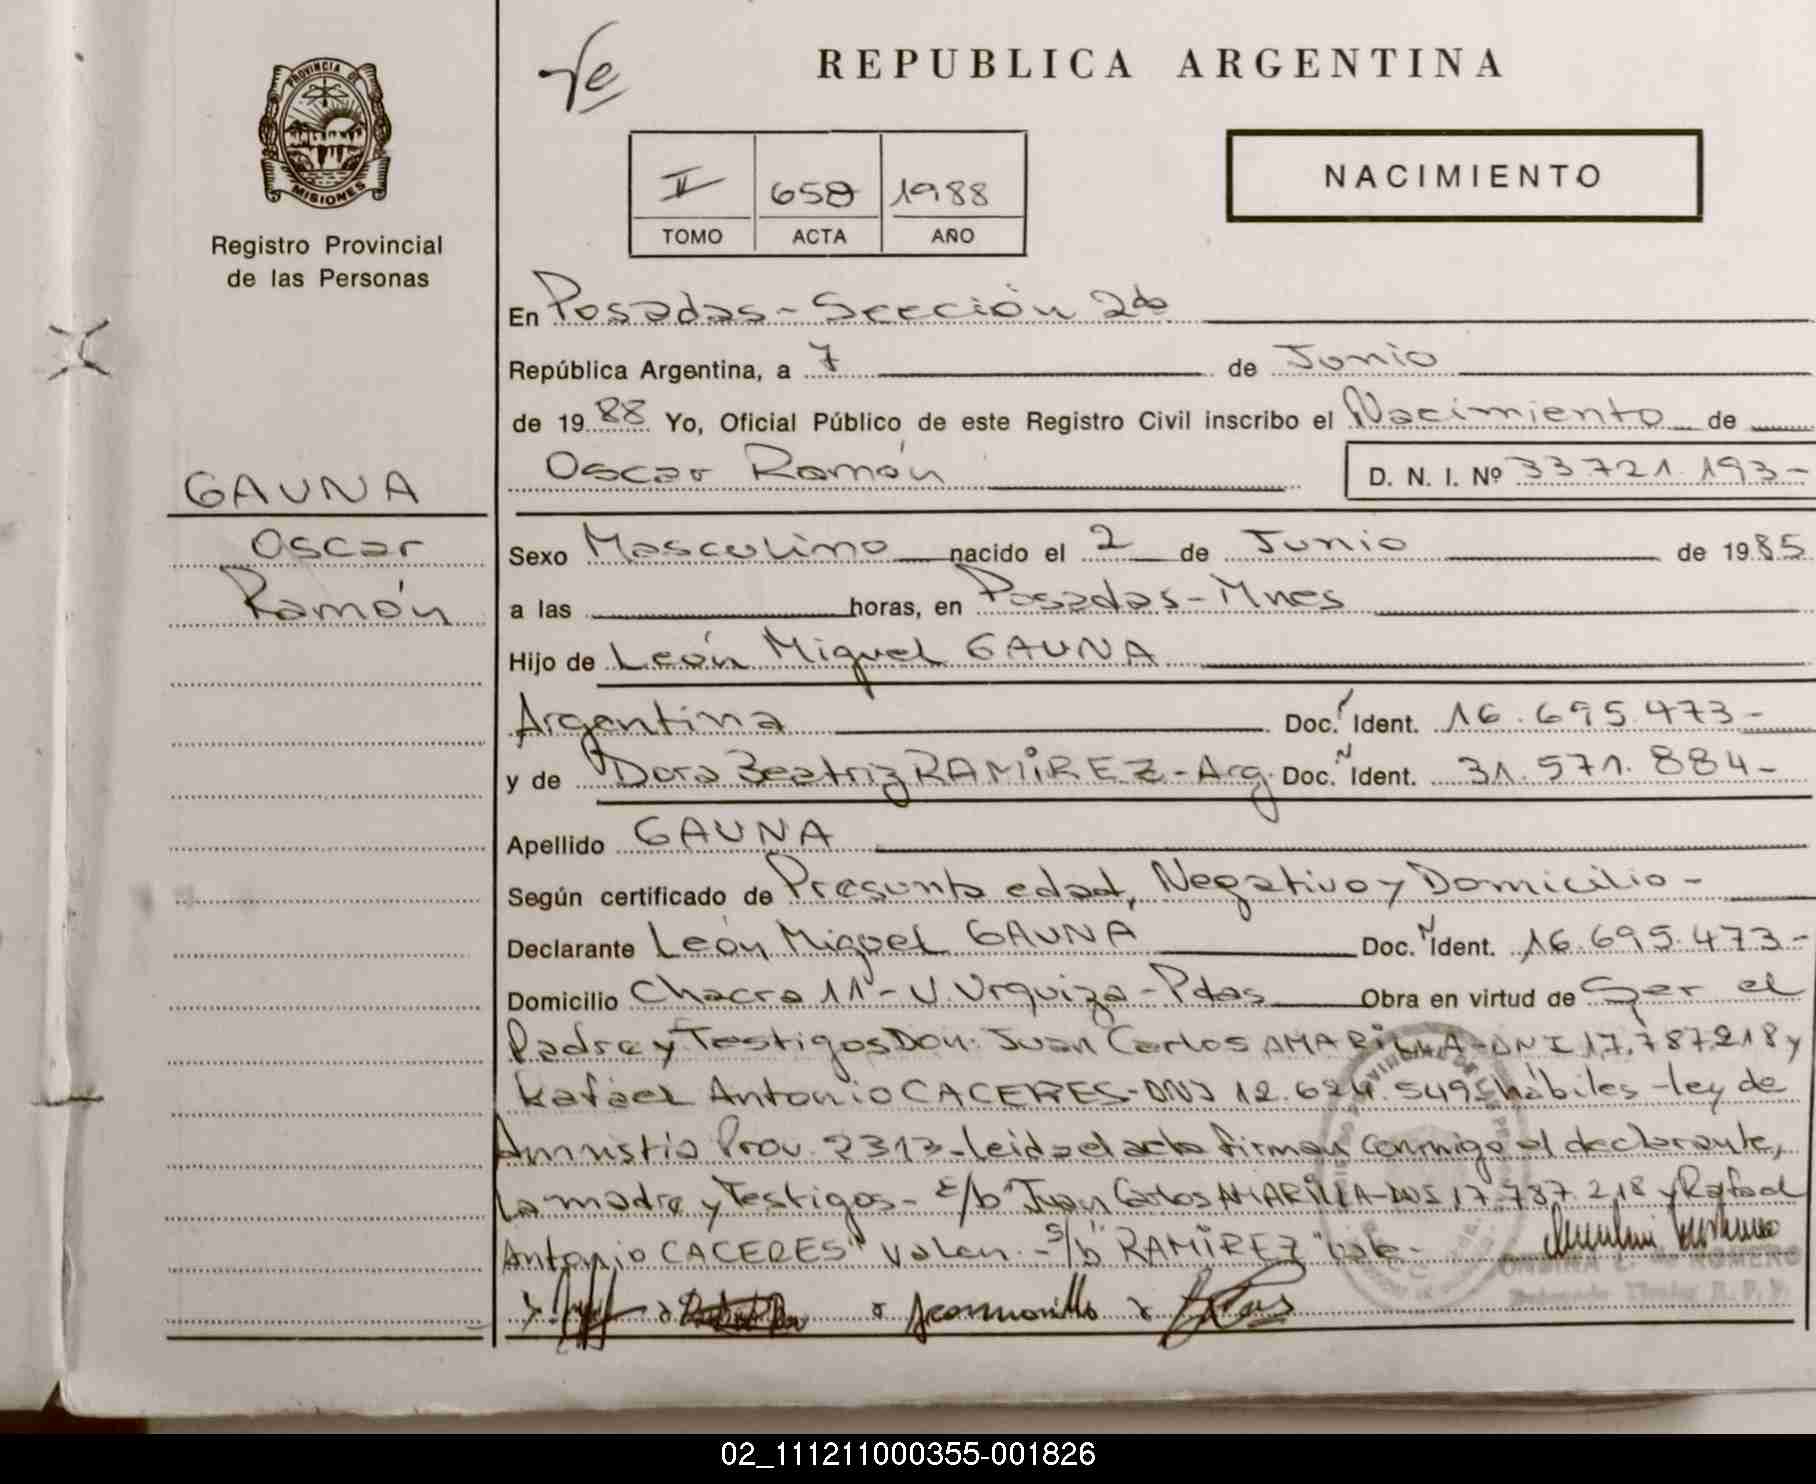 REPUBLICA ARGENTINA
PROVINCIA DE
MISIONES
Registro Provincial
de las Personas
II 658 1988
TOMO ACTA AÑO
NACIMIENTO
En Posadas - Sección 2da
República Argentina, a 7 de Junio
de 1988 Yo, Oficial Público de este Registro Civil inscribo el Nacimiento de
Oscar Ramón D. N. I. Nº 33721.193-
GAUNA
Oscar
Ramón
Sexo Masculino nacido el 2 de Junio de 1985
a las horas, en Posadas - Mnes
Hijo de León Miguel GAUNA
Argentina Doc. Ident. 16.695.473-
y de Dora Beatriz RAMIREZ - Arg. Doc. Ident. 31.571.884-
Apellido GAUNA
Según certificado de Presunta edad, Negativo y Domicilio -
Declarante León Miguel GAUNA Doc. Ident. 16.695.473-
Domicilio Chacra 11 - V. Urquiza - Pdas Obra en virtud de Ser el
Padre y Testigos Don: Juan Carlos AMARILLA - DNI 17.787.218 y
Rafael Antonio CACERES - DNI 12.624.549 hábiles - ley de
Amnistia Prov. 2313 - Leida el acta firman conmigo el declarante,
La madre y Testigos - E/b "Juan Carlos AMARILLA - DNI 17.787.218 y Rafael
Antonio CACERES" Valen - S/b "RAMIREZ" Vale -
ROMERO
02_111211000355-001826